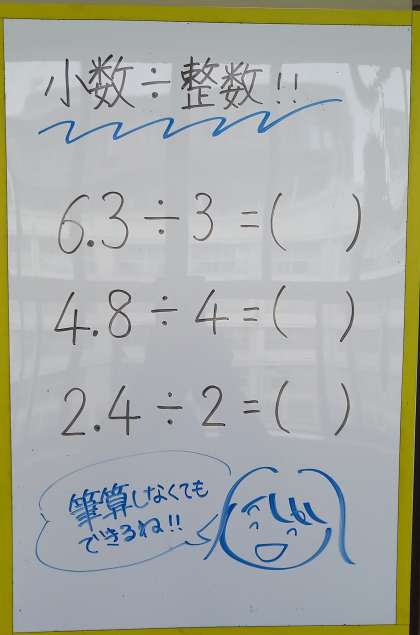 小数÷整数!!
6.3÷3=( )
4.8÷4=( )
2.4÷2=( )
筆算しなくても
できるね!!